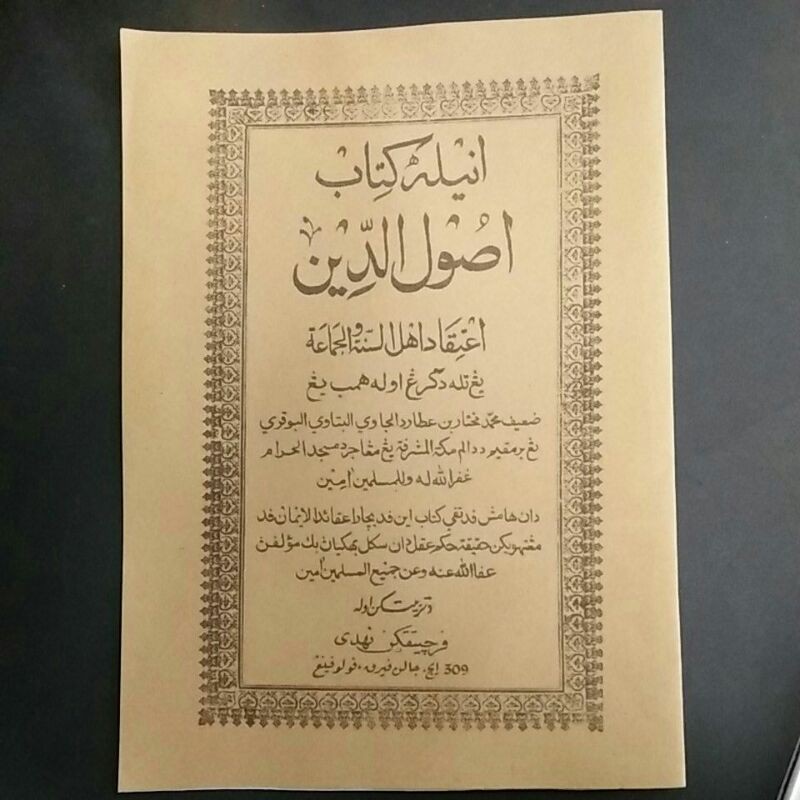 انيله كتاب
اصُوْل الدِّيْن
اعْتِقَاد اهل السّنّة والجَمَاعَة
يڠ تله دكارڠ اوله همب يڠ
ضعيف محمّد مختار بن عطارد الجاوي البتاوي البوقري
يڠ برمقيم ددالم مكة المشرفة يڠ مڠاجر د مسجد الحرام
غفر الله له وللمسلمين امين
دان هامش فد تڤي كتاب اين فد بچارا عقائد الايمان فد
مڠتهويكن حقيقة حكم عقل دان سكل بهݢيان بݢ مؤلفن
عفا الله عنه وعن جميع المسلمين امين
دتربيتكن اوله
ڤرچيتقكن نهدي
309 ايچ، جالن ڤيرق، ڤولو ڤينڠ